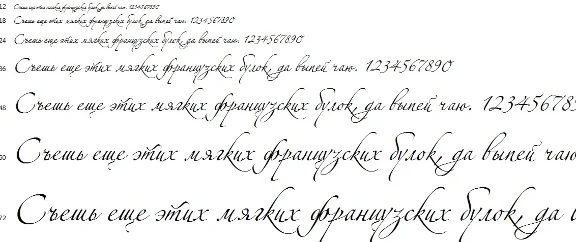 12 Съешь еще этих мягких французских булок, да выпей чаю. 1234567890
18 Съешь еще этих мягких французских булок, да выпей чаю. 1234567890
24 Съешь еще этих мягких французских булок, да выпей чаю. 1234567890
36 Съешь еще этих мягких французских булок, да выпей чаю. 1234567890
48 Съешь еще этих мягких французских булок, да выпей чаю. 123456789
60 Съешь еще этих мягких французских булок, да выпей чаю
72 Съешь еще этих мягких французских булок, да в